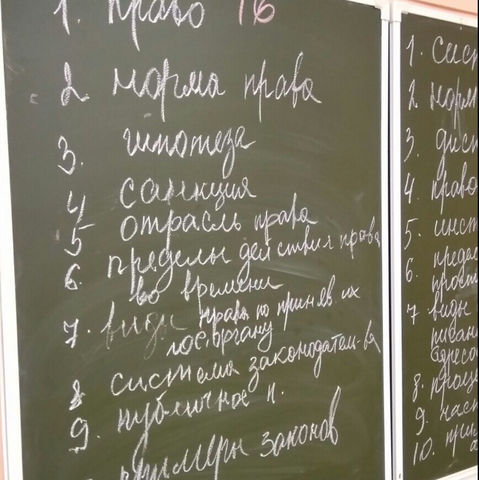 1. Право 16
2. норма права
3. гипотеза
4 санкция
5 отрасль права
6. пределы действия права
во времени
7. виды права по приняв их
гос. органу
8 система законодат-ва
9. публичное п.
примеры законов
1. сист
2. норм
3. дисп
4. право
5. инст
6. предел
простр
7 виды
адресо
8. проце
9. част
10. при